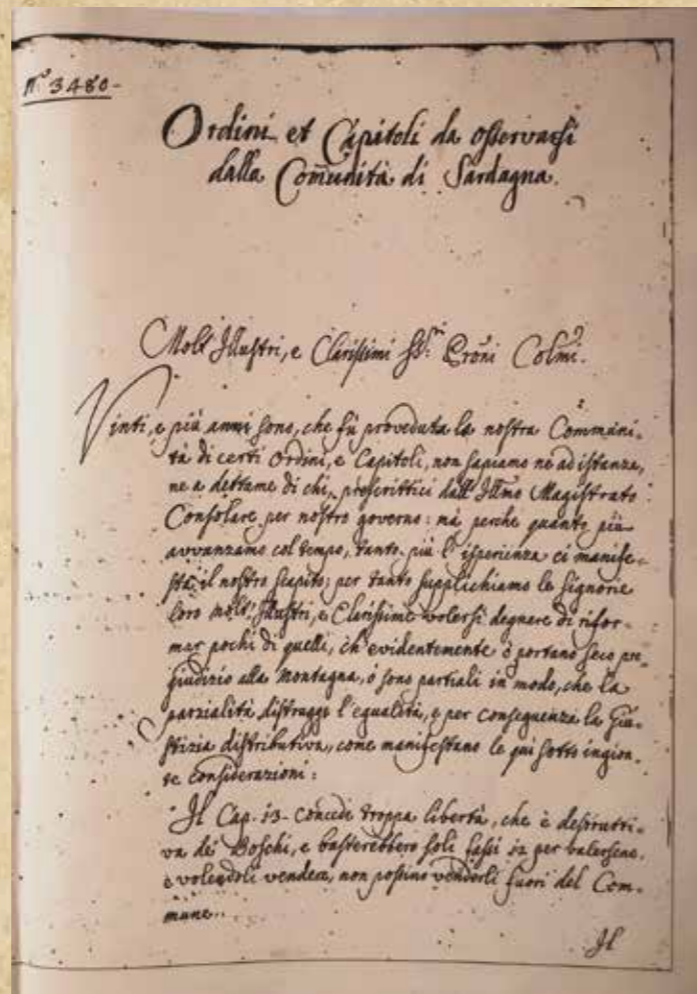 N.º 3480-
Ordini et Capitoli da osservarsi
dalla Com̃unità di Sardagna.
Molt' Illustri, e Clarissimi SS.ri Pro͠ni Colmi.
Vinti, e più anni sono, che fù proveduta la nostra Communi-
tà di certi Ordini, e Capitoli, non sapiamo ne ad istanza,
ne a dettame di chi, proscrittici dall' Illmo Magistrato
Consolare per nostro governo: mà perche quanto più
avvanzamo col tempo, tanto più l'isperienza ci manife-
sta il nostro scapito; per tanto supplichiamo le Signorie
loro molt' Illustri, e Clarissime volersi degnare di rifor-
mar pochi di quelli, ch' evidentemente ò portano seco pre-
giudizio alla Montagna, ò sono partiali in modo, che la
parzialità distrugge l'egualità, e per conseguenza la Giu-
stizia distributiva, come manifestano le qui sotto ingion-
te considerazioni:
Il Cap. 13. concede troppa libertà, che è destrutti-
va de' Boschi, e basterebbero soli fassi 12 per valersene,
e volendoli vendere, non possino venderli fuori del Com-
mune.
Il